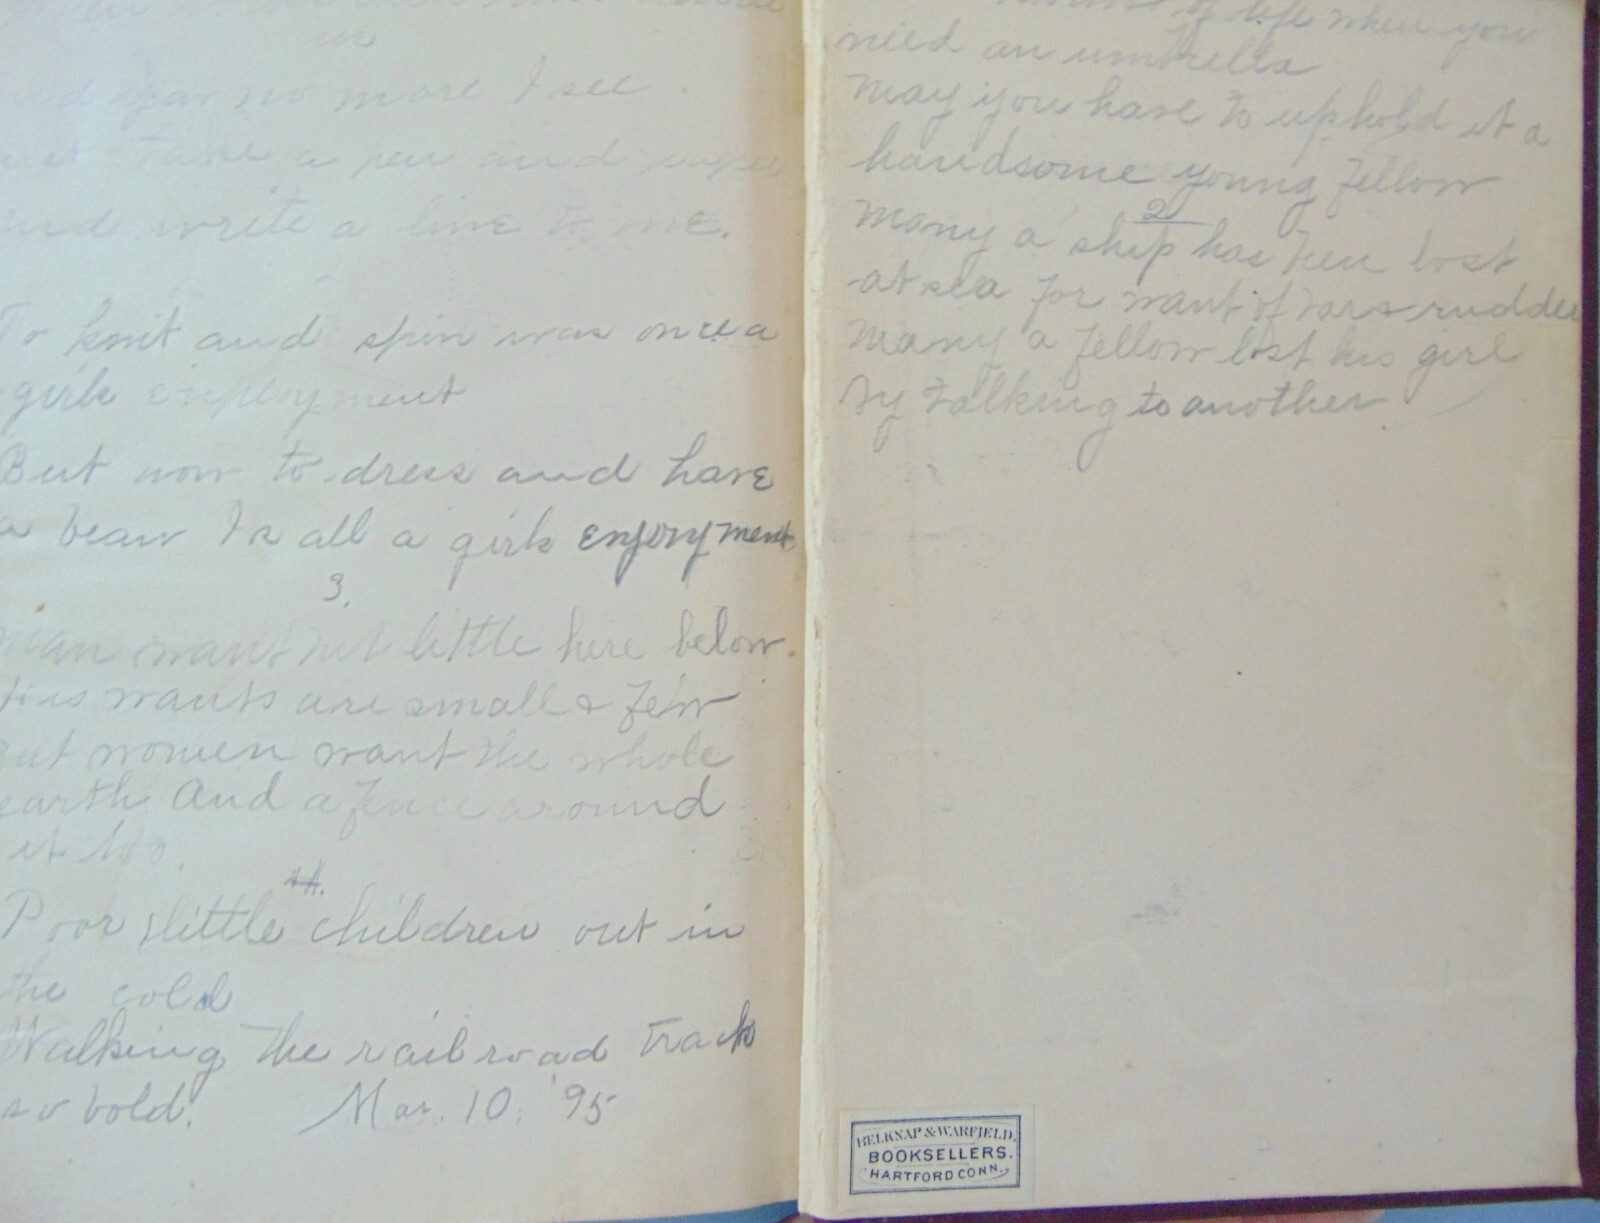 in
no more I see.
take a pen and
and write a line to me.
To knit and spin was once a
girls employment
But now to dress and have
a beau Is all a girls enjoyment
3.
man want but little here below.
His wants are small & few
But women want the whole
earth And a fence around
it too.
4.
Poor little children out in
the cold
Walking the railroad track
so bold. Mar. 10. '95
of life when you
need an umbrella
May you have to uphold it a
handsome young fellow
2
Many a ship has been lost
at sea for want of rudder
Many a fellow lost his girl
By talking to another
BELKNAP & WARFIELD,
BOOKSELLERS.
HARTFORD CONN.